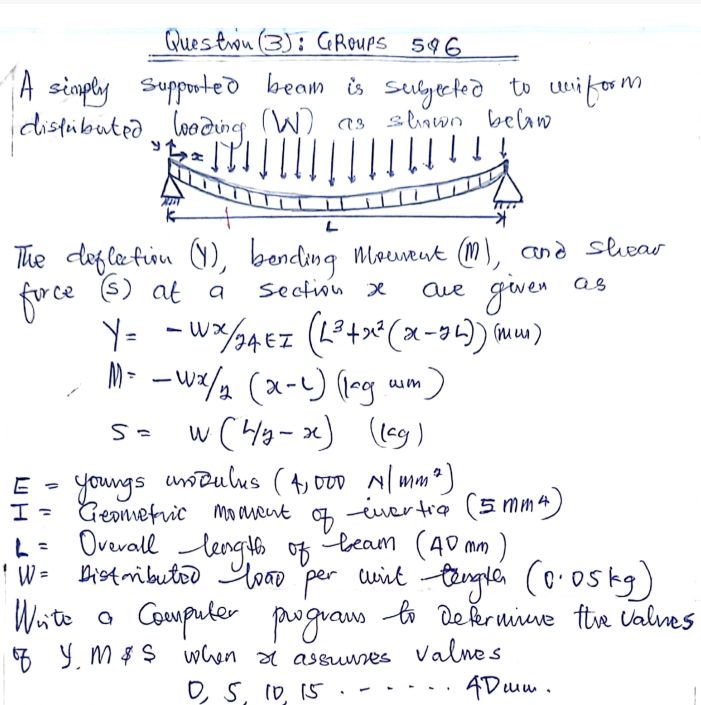 Question (3): GROUPS 5&6
A simply supported beam is subjected to uniform
distributed loading (W) as shown below
y
x
L
The deflection (Y), bending Moment (M), and shear
force (S) at a section x are given as
Y = -Wx/24EI (L³+x²(x-2L)) (mm)
M = -Wx/2 (x-L) (kg mm)
S = W (L/2 - x) (kg)
E = Youngs modulus (4,000 N/mm²)
I = Geometric moment of inertia (5 mm4)
L = Overall length of beam (40 mm)
W = Distributed load per unit length (0.05kg)
Write a Computer program to Determine the Values
of Y, M & S when x assumes values
0, 5, 10, 15 . - - - - . . 40mm.